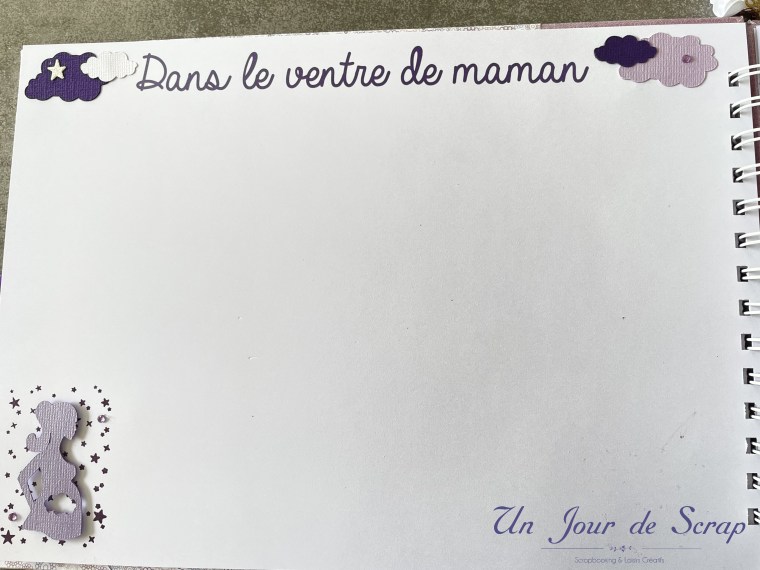 Dans le ventre de maman
Un Jour de Scrap
Scrapbooking & Loisirs Créatifs